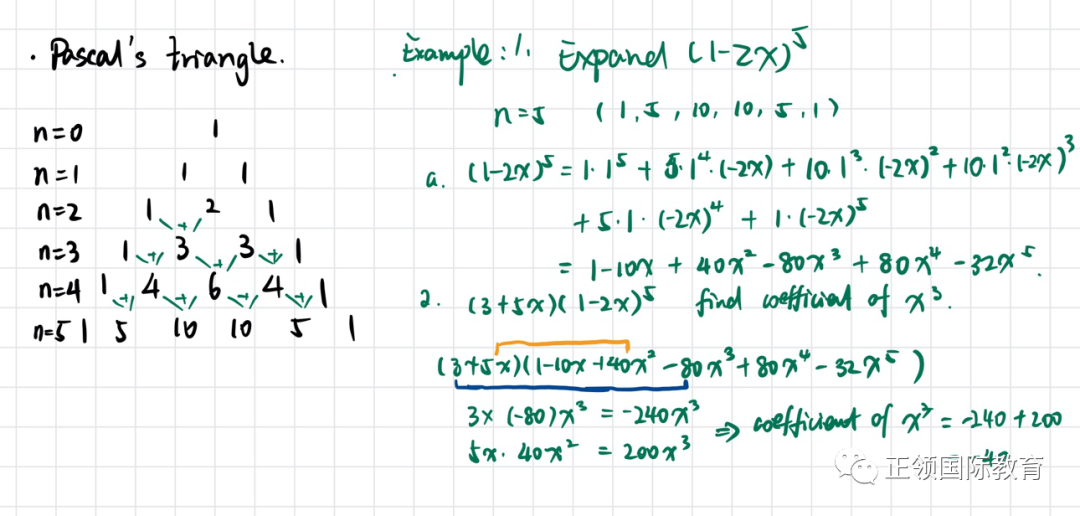 · Pascal's triangle.
n=0 1
n=1 1 1
n=2 1 2 1
n=3 1 3 3 1
n=4 1 4 6 4 1
n=5 1 5 10 10 5 1
Example: 1. Expand (1-2x)⁵
n=5 (1, 5, 10, 10, 5, 1)
a. (1-2x)⁵ = 1·1⁵ + 5·1⁴·(-2x) + 10·1³·(-2x)² + 10·1²·(-2x)³
+ 5·1·(-2x)⁴ + 1·(-2x)⁵
= 1-10x + 40x² - 80x³ + 80x⁴ - 32x⁵.
2. (3+5x)(1-2x)⁵ find coefficient of x³.
(3+5x)(1-10x+40x² - 80x³ + 80x⁴ - 32x⁵)
3x (-80)x³ = -240x³
5x · 40x² = 200x³
⇒ coefficient of x³ = -240 + 200
= -40
正领国际教育